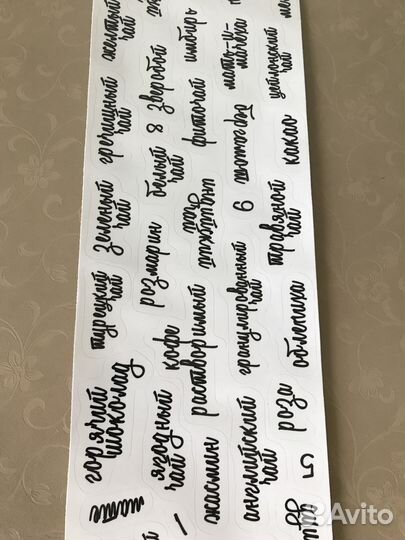 мате
горячий
шоколад
турецкий
чай
зеленый
чай
гречишный
чай
желтый
чай
1
ягодный
чай
кофе
растворимый
розмарин
белый
чай
8
зверобой
жасмин
индийский
чай
фиточай
имбирь
английский
чай
гранулированный
чай
9
мать-и-
мачеха
5
роза
облепиха
травяной
чай
какао
цейлонский
чай
Avito